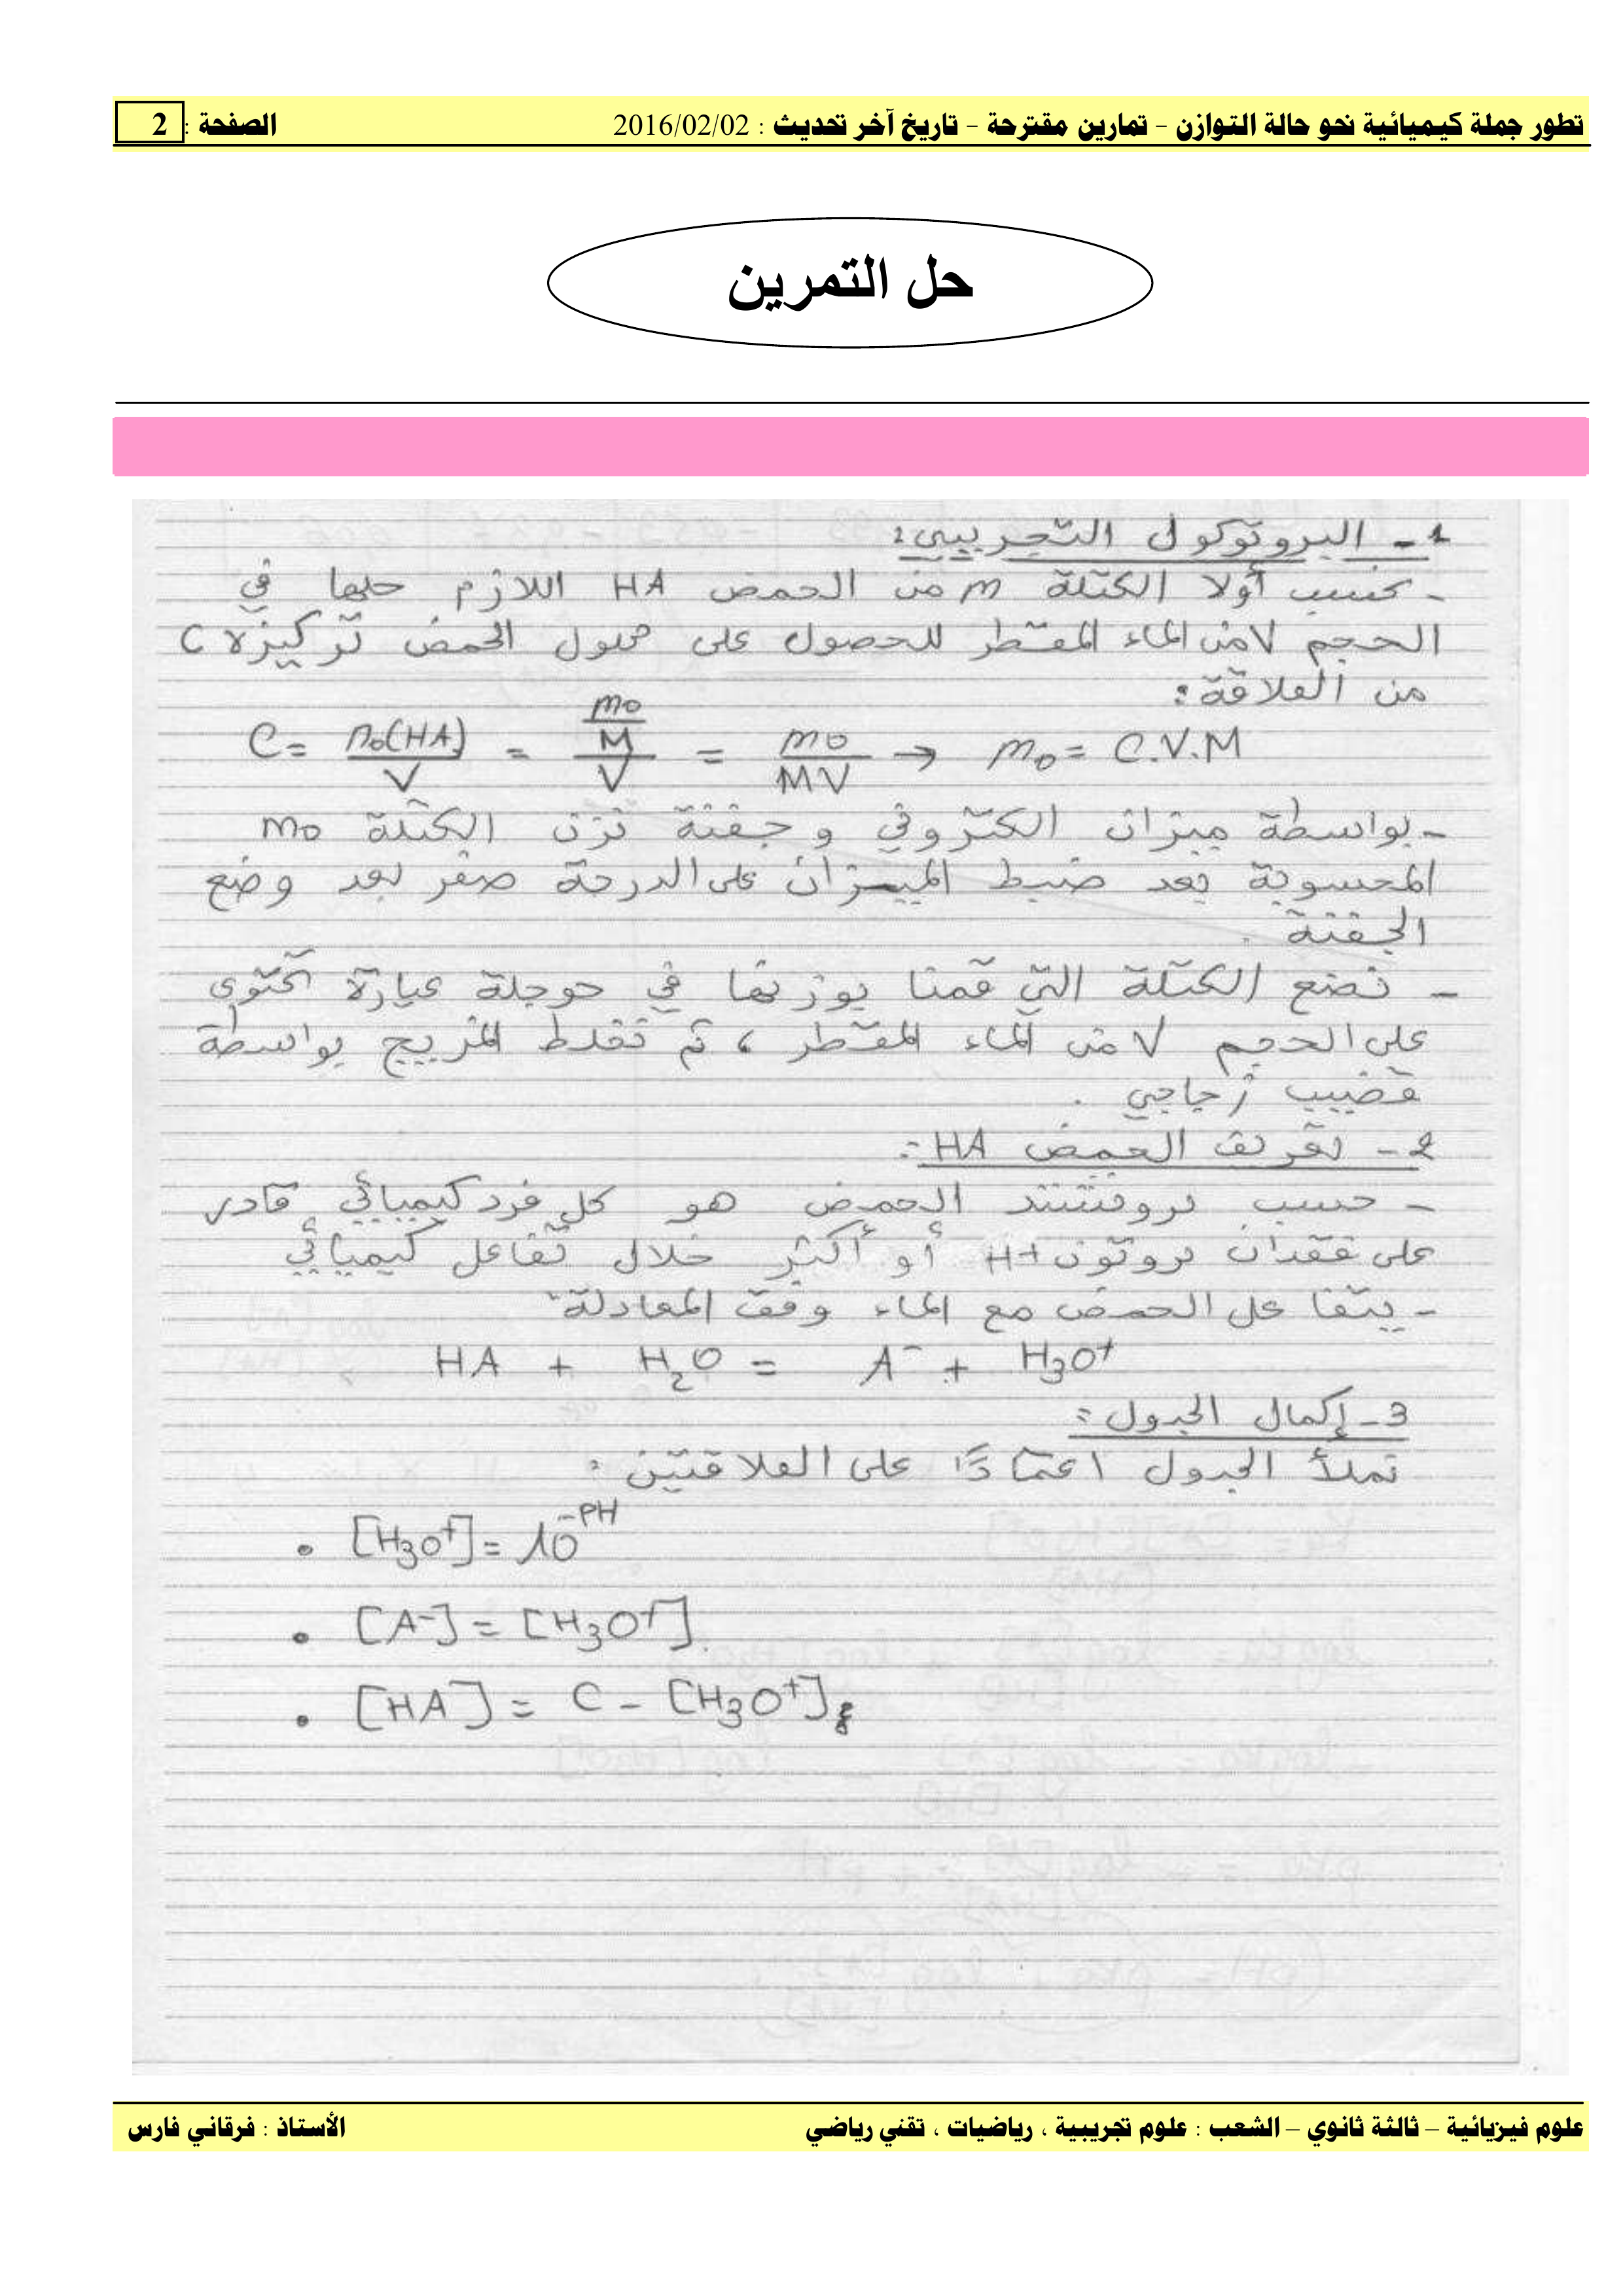 تطور جملة كيميائية نحو حالة التوازن – تمارين مقترحة – تاريخ آخر تحديث : 2016/02/02 الصفحة : 2
حل التمرين
1- البروتوكول التجريبي:
- نحسب أولا الكتلة m من الحمض HA اللازم حلها في
الحجم V من الماء المقطر للحصول على محلول الحمض تركيزه C
من العلاقة:
C = n₀(HA)/V = (m₀/M)/V = m₀/MV → m₀ = C.V.M
- بواسطة ميزان الكتروني و جفنة نزن الكتلة m₀
المحسوبة بعد ضبط الميزان على الدرجة صفر بعد وضع
الجفنة .
- نضع الكتلة التي قمنا بوزنها في حوجلة عيارة تحتوي
على الحجم V من الماء المقطر ، ثم نخلط المزيج بواسطة
قضيب زجاجي .
2- تعريف الحمض HA :
- حسب برونشتد الحمض هو كل فرد كيميائي قادر
على فقدان بروتون H+ أو أكثر خلال تفاعل كيميائي
- يتفاعل الحمض مع الماء وفق المعادلة:
HA + H₂O = A⁻ + H₃O⁺
3- إكمال الجدول :
نملأ الجدول اعتمادًا على العلاقتين :
• [H₃O⁺] = 10^-PH
• [A⁻] = [H₃O⁺]
• [HA] = C - [H₃O⁺]f
علوم فيزيائية – ثالثة ثانوي – الشعب : علوم تجريبية ، رياضيات ، تقني رياضي الأستاذ : فرقاني فارس